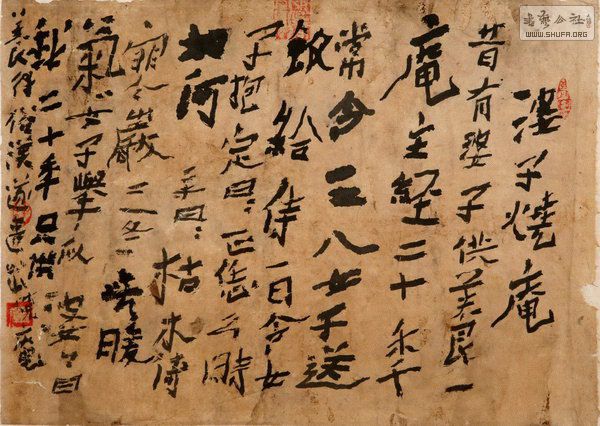 婆子燒庵
昔有婆子供養一
庵主經二十年
常令二八女子送
飯給侍一日令女
子抱定曰:正恁么時
如何 主曰:枯木倚
寒巖三冬無暖
氣女子舉似婆婆曰
我二十年只供
養得俗漢遂遣出燒庵
书艺公社
WWW.SHUFA.ORG